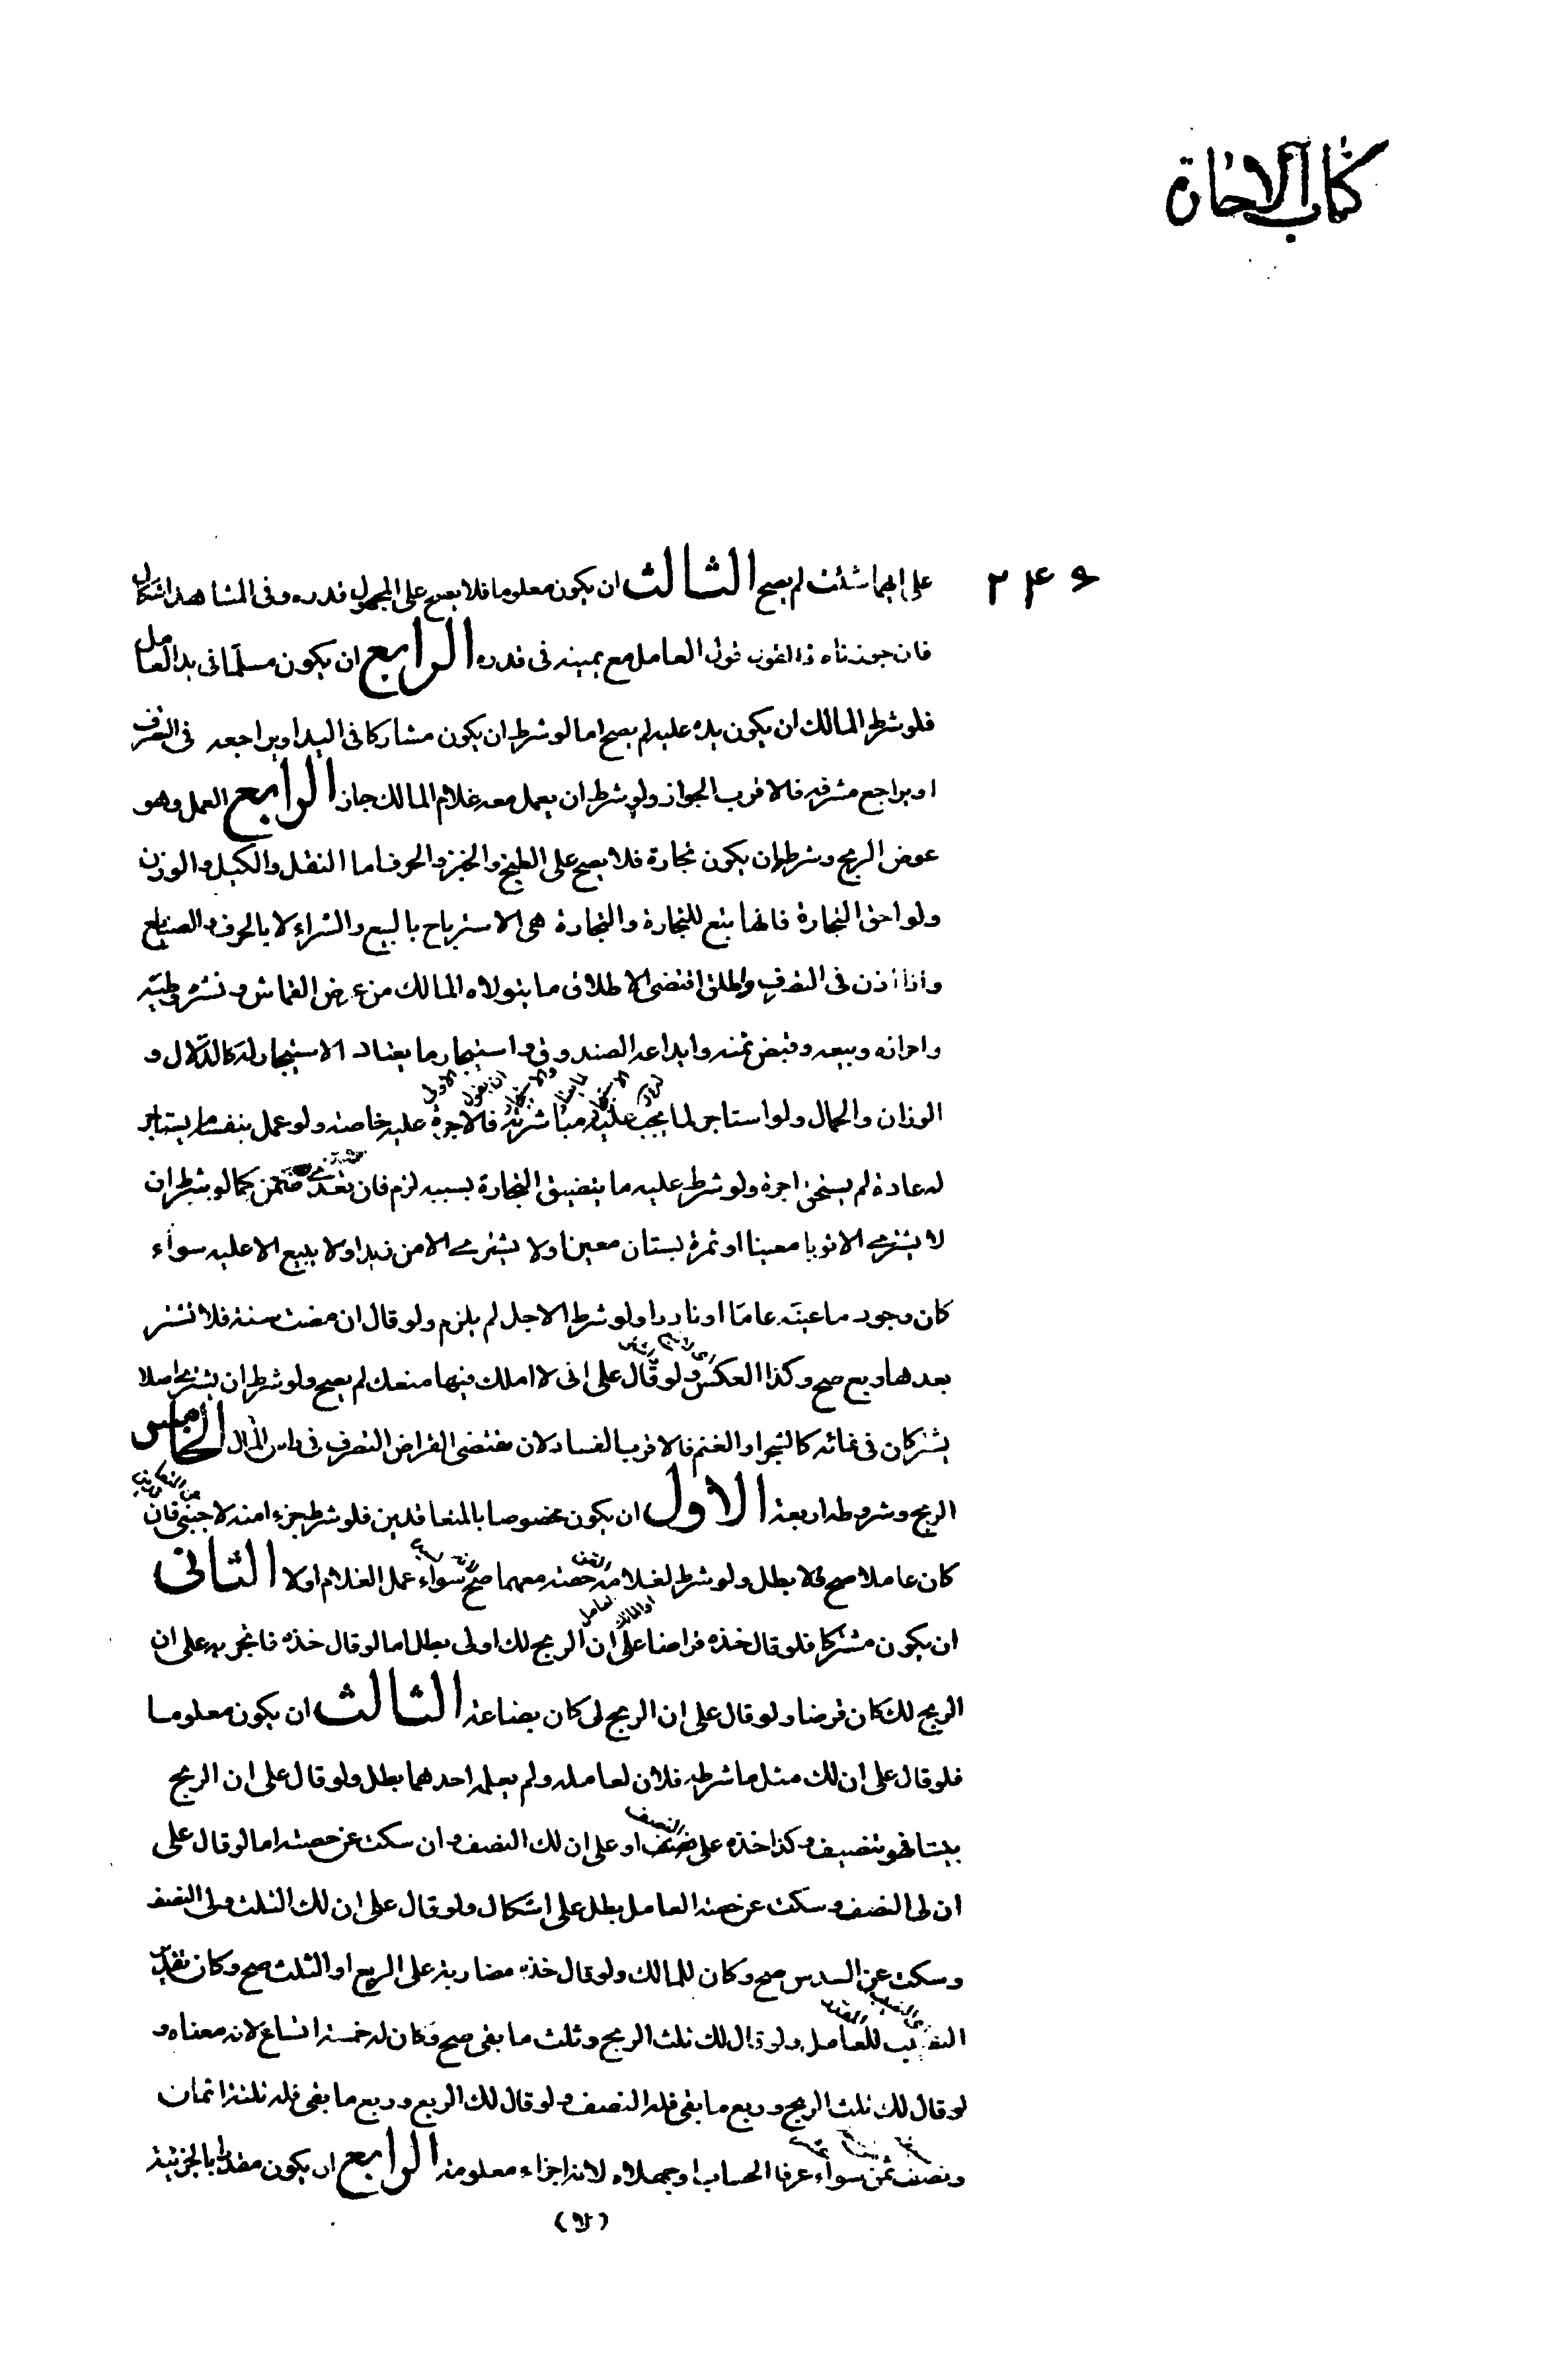 كتاب الاجارة
٢٤٦
على ايهما شئت لم يصح الثالث ان يكون معلوما فلا يصح على المجهول قدره وفى المشاهد اشكال
فان جوزناه فالقول قول العامل مع يمينه فى قدره الرابع ان يكون مسلّما فى يد العامل
فلو شرط المالك ان يكون يده عليه لم يصح اما لو شرط ان يكون مشاركا فى اليد او يراجعه فى التصرف
او يراجع مشرفه فالاقرب الجواز ولو شرط ان يعمل معه غلام المالك جاز الرابع العمل وهو
عوض الربح وشرطه ان يكون تجارة فلا يصح على الطبخ والخبز والحرف اما النقل والكيل والوزن
ولواحق التجارة فانها تبع للتجارة والتجارة هى الاسترباح بالبيع والشراء لا بالحرف والصنايع
واذا اذن فى التصرف واطلق اقتضى الاطلاق ما يتولاه المالك من عرض القماش ونشره وطيّه
واحرازه وبيعه وقبض ثمنه وايداعه الصندوق واستيجار ما يعتاد الاستيجار له كالدّلال و
الوزان والحمال ولو استاجر لما يجب عليه مباشرته فالاجرة عليه خاصة ولو عمل بنفسه ما يستاجر
له عادة لم يستحق اجرة ولو شرط عليه ما يتضيق التجارة بسببه لزم فان تعدى ضمن كما لو شرط ان
لا يشترى الا ثوبا معينا او ثمرة بستان معين او لا يشترى الا من زيد او لا يبيع الا عليه سواء
كان وجود ما عينّه عامّا او نادرا ولو شرط الاجل لم يلزم ولو قال ان مضت سنة فلا تشتر
بعدها وبع صح وكذا العكس ولو قال على انى لا املك فيها منعك لم يصح ولو شرط ان يشترى اصلا
يشتركان فى نمائه كالشجر او الغنم فالاقرب الفساد لان مقتضى القراض التصرف فى راس المال الخامس
الربح وشروطه اربعة الاول ان يكون مخصوصا بالمتعاقدين فلو شرط جزء امنه لاجنبى فان
كان عاملا صح والا بطل ولو شرط لغلامه حصة معهما صح سواء عمل الغلام او لا الثانى
ان يكون مشتركا فلو قال خذه قراضا على ان الربح لك او لى بطل اما لو قال خذه فاتجر به على ان
الربح لك كان قرضا ولو قال على ان الربح لى كان بضاعة الثالث ان يكون معلوما
فلو قال على ان لك مثل ما شرطه فلان لعامله ولم يعلمه احدهما بطل ولو قال على ان الربح
بيننا فهو تنصيف وكذا خذه على النصف او على ان لك النصف وان سكت عن حصته اما لو قال على
ان لى النصف وسكت عن حصة العامل بطل على اشكال ولو قال على ان لك الثلث ولى النصف
وسكت عن السدس صح وكان للمالك ولو قال خذه مضاربة على الربع او الثلث صح وكان تقدير
النصيب للعامل ولو قال لك ثلث الربح وثلث ما بقى صح وكان له خمسة اتساع لانه معناه و
لو قال لك ثلث الربح وربع ما بقى فله النصف ولو قال لك الربع وربع ما بقى فله ثلثة اثمان
ونصف ثمن سواء عرفا الحساب او جهلاه لانه اجزاء معلومة الرابع ان يكون مقدرا بالجزئية